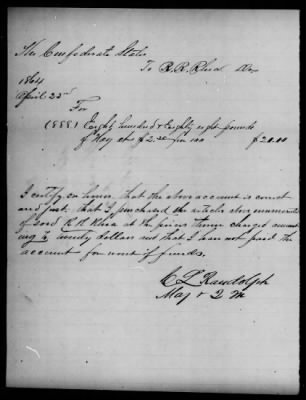 The Confederate States
To R. R. Rhea Dr
1864
April 23rd
For
(888) Eighty hundred & Eighty eight pounds
of Hay at $2.25 per 100 $20.00
I certify on honor that the above account is correct
and just, that I purchased the article above enumerated
of said R R Rhea at the prices therein charged amount
ing to twenty dollars and that I have not paid the
account for want of funds.
C L Randolph
Maj & Q M